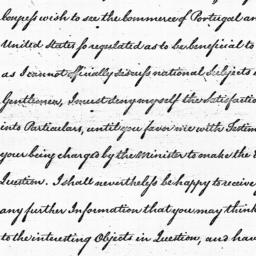 Congress wish to see the Commerce of Portugal an
United States so regulated as to be beneficial to
as I cannot officially discuss national Subjects
Gentlemen, I must deny myself the Satisfactio
into Particulars, until you favor me with Testim
your being charged by the Minister to make the
Question. I shall nevertheless be happy to receive
any further Information that you may think
to the interesting Objects in Question, and hav